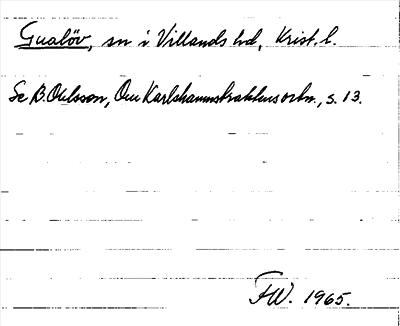 Gualöv, sn i Villands hd, Krist. l.
Se B. Ohlsson, Om Karlshamnstraktens ortn., s. 13.
FW. 1965.